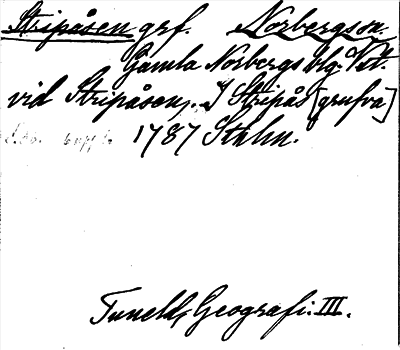 Stripåsen grf. Norbergssn.
Gamla Norbergs blg. Vet.
vid Stripåsen, I Stripås [grufva]
1787 Sthlm.
Tuneld, Geografi. III.